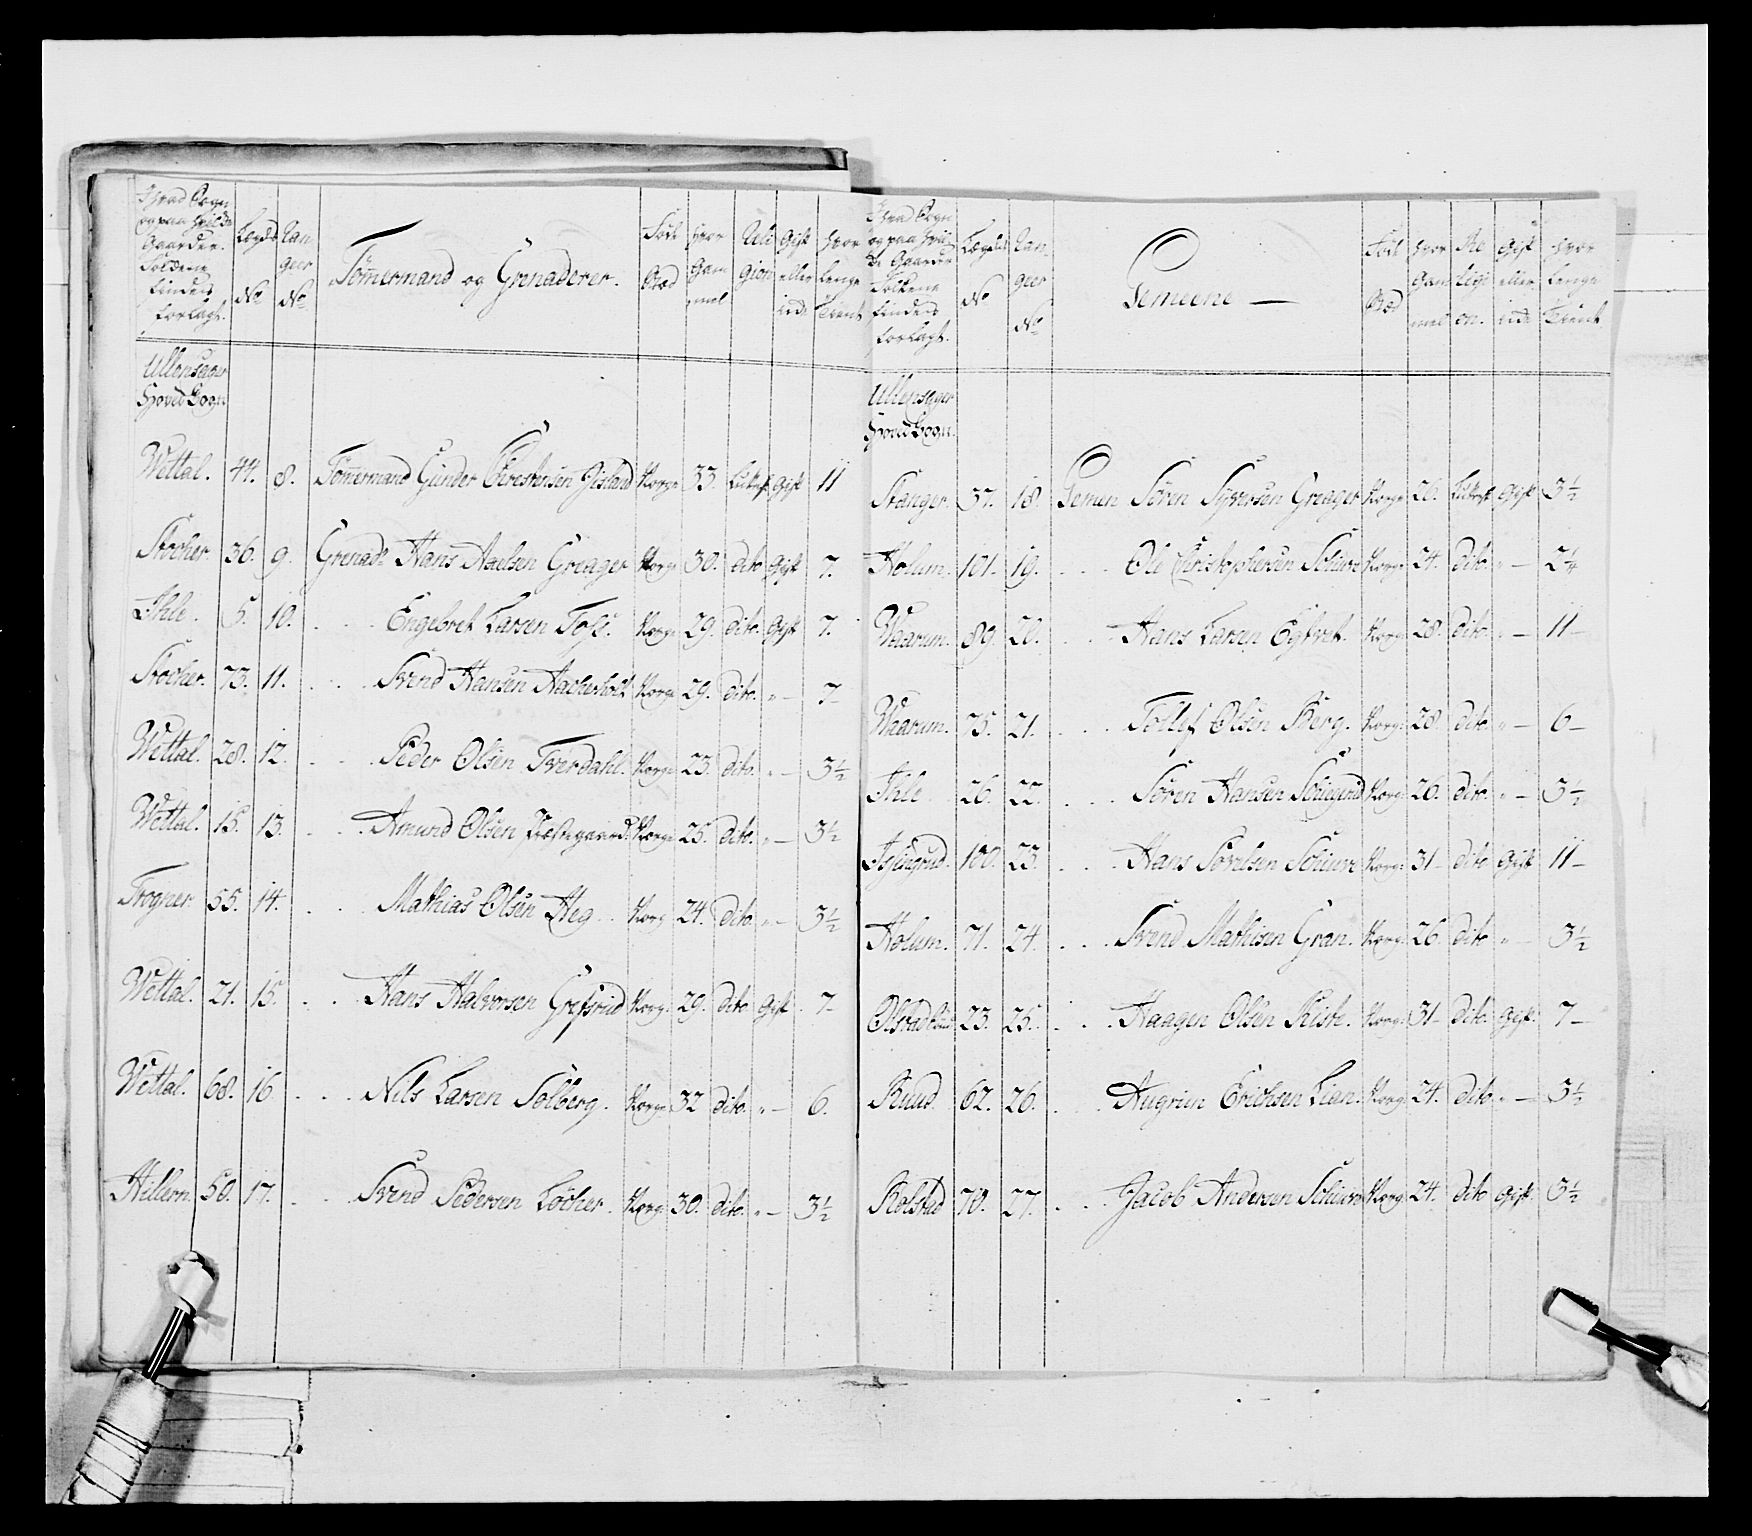 I hvad Sogn
og paa hvilke
Gaarder
Folckene
findes
forlagt.
Lægds
No
Ran-
geer
No
Tömermand og Grenaderer.
Föde
Stæd
hvor
Gam
mel
Reli
gion
Gift
eller
ej
hvor
lenge
Tient
Ullensager
Hoved Sogn
Wettal. 44. 8. Tömermand Gunder Christensen Jistad Norge 33. Luthsk Gift 11
Stocher 36. 9. Grenadr Hans Axelsen Greager Norge 30. dito Gift 7.
Ihle. 5. 10. Engebret Larsen Foss. Norge 29. dito. Gift 7.
Stocher. 73. 11. Svend Hansen Aacherholt Norge 29. dito. „ — 7
Wettal. 28. 12. Peder Olsen Tverdahl. Norge 23. dito. „ — 3½
Wettal. 15. 13. Amund Olsen Præstegaard. Norge 25. dito. „ — 3½
Frogner 55. 14. Mathias Olsen Heg Norg 24. dito. „ — 3½
Wettal. 21. 15. Hans Halvorsen Grefsrud Norg. 29. dito Gift 7
Wettal. 68. 16 Nils Larsen Solberg. Norge 32 dito. „ — 6.
Hillern. 50. 17. Svend Pedersen Löcher. Norg. 30. dito. „ — 3½
I hvad Sogn
og paa hvil-
ke Gaarder
Folckene
findes
forlagt.
Lægds
No
Ran-
geer
No
Gemeene —
Föd
Stæd
hvor
Gam
mel
Re
ligi
on.
Gift
eller
ej
hvor
lenge
Tient
Ullensager
Hoved Sogn.
Stanger. 37. 18. Gemen Sören Syversen Greager Norge 26. Luthsk Gift 3½
Holum. 101. 19. Ole Christophersen Norge 24. dito. „ — 2¼
Waarum. 89. 20. Hans Larsen Norg. 28. dito. „ — 11 —
Waarum. 75. 21. Tollef Olsen Berg. Norg. 28 dito. „ — 6 —
Ihle 26. 22. Sören Hansen Norg. 26. dito. „ — 3½
100. 23. Hans Norg. 31 dito Gift 11 —
Holum. 71. 24. Svend Mathisen Gran. Norg. 26. dito „ — 3½
23. 25. Haagen Olsen Norg. 31 dito. Gift. 7 —
Ruud 62. 26. Erichsen Lien. Norg. 24. dito „ — 3½
Rolstad 70. 27. Jacob Andersen Norg. 24. dito Gift. 3½